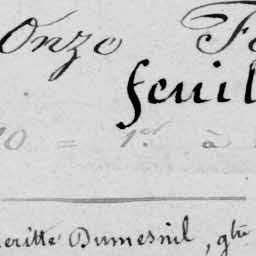 Onze Fe
feuil
10 = 1.er à
eritte Dumesnil, qtre